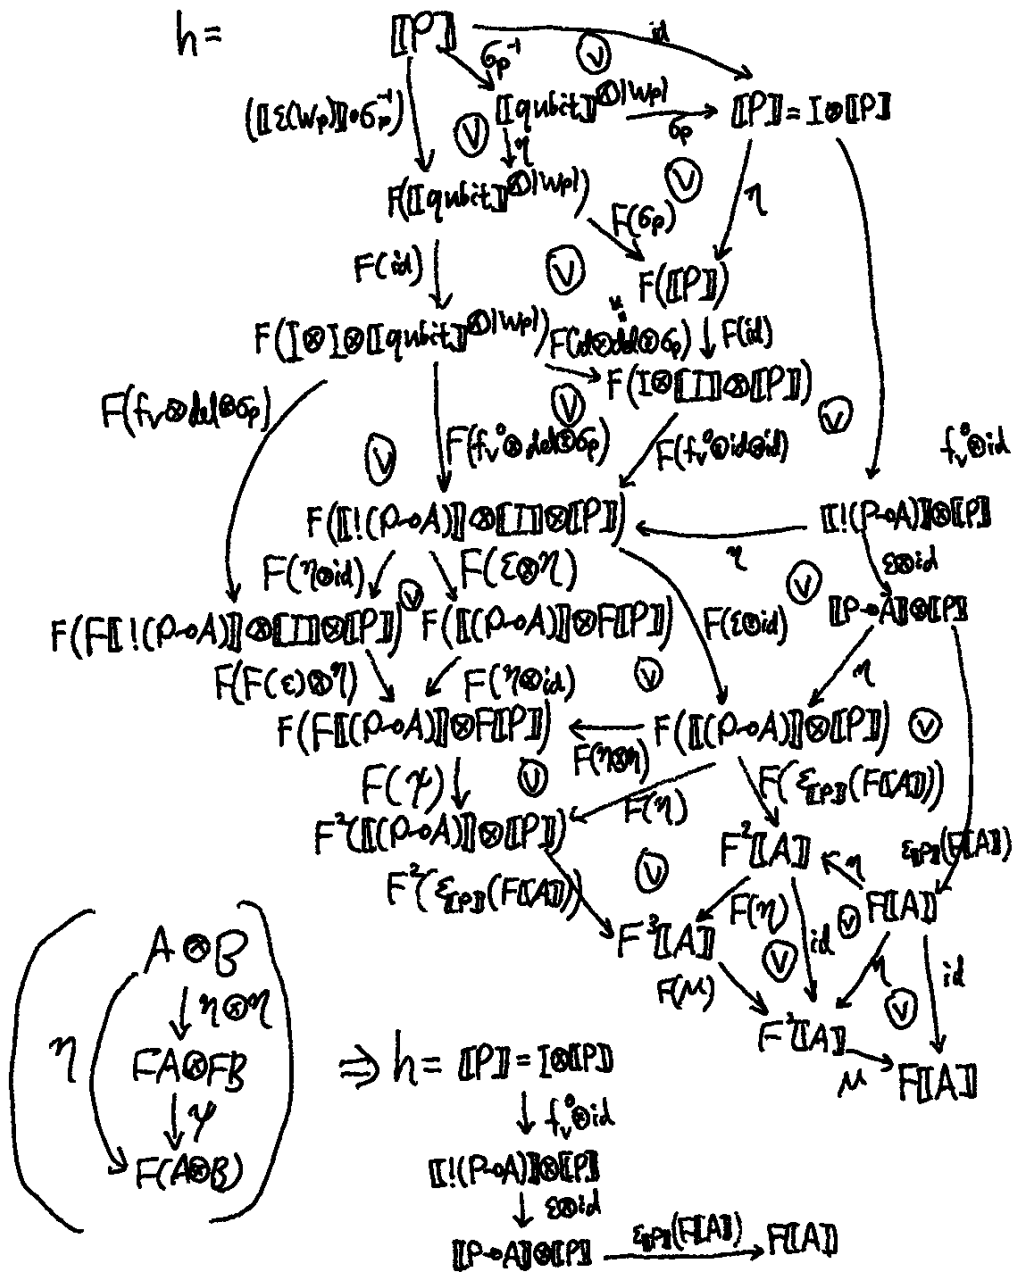 h = ⟦P⟧ id
σ_P^{-1} Ⓥ
(⟦ε(W_P)⟧∘σ_P^{-1}) Ⓥ ⟦qubit⟧^{⊗|W_P|} σ_P ⟦P⟧ = I⊗⟦P⟧
η Ⓥ
F(⟦qubit⟧^{⊗|W_P|}) F(σ_P) η
F(id) Ⓥ F(⟦P⟧)
F(I⊗I⊗⟦qubit⟧^{⊗|W_P|}) F(id⊗del⊗σ_P) F(id)
F(I⊗⟦I⟧⊗⟦P⟧)
F(f_v⊗del⊗σ_P) Ⓥ Ⓥ
Ⓥ F(f_v^0⊗del⊗σ_P) F(f_v^0⊗id⊗id) f_v^0⊗id
F(⟦!(P⊸A)⟧⊗⟦I⟧⊗⟦P⟧) η ⟦!(P⊸A)⟧⊗⟦P⟧
F(η⊗id) F(ε⊗η) Ⓥ ε⊗id
Ⓥ ⟦P⊸A⟧⊗⟦P⟧
F(F⟦!(P⊸A)⟧⊗⟦I⟧⊗⟦P⟧) F(⟦(P⊸A)⟧⊗F⟦P⟧) F(ε⊗id)
F(F(ε)⊗η) F(η⊗id) Ⓥ η
F(F⟦(P⊸A)⟧⊗F⟦P⟧) F(η⊗η) F(⟦(P⊸A)⟧⊗⟦P⟧) Ⓥ
F(ψ) Ⓥ F(η) F(ε_{⟦P⟧}(F⟦A⟧))
F²(⟦(P⊸A)⟧⊗⟦P⟧) F²⟦A⟧ ε_{⟦P⟧}(F⟦A⟧)
F²(ε_{⟦P⟧}(F⟦A⟧)) Ⓥ η
F(η) Ⓥ F⟦A⟧
F³⟦A⟧ Ⓥ id η id
F(μ) Ⓥ
F²⟦A⟧ μ F⟦A⟧
A⊗B
η⊗η
η FA⊗FB
ψ
F(A⊗B)
⇒ h = ⟦P⟧ = I⊗⟦P⟧
f_v^0⊗id
⟦!(P⊸A)⟧⊗⟦P⟧
ε⊗id
⟦P⊸A⟧⊗⟦P⟧ ε_{⟦P⟧}(F⟦A⟧) F⟦A⟧